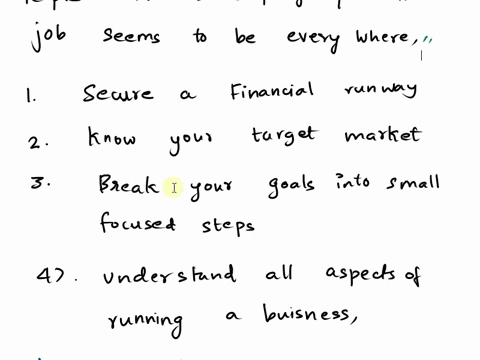 job seems to be every where,,,
1. Secure a Financial runway
2. know your target market
3. Break your goals into small
focused steps
4). understand all aspects of
running a buisness,